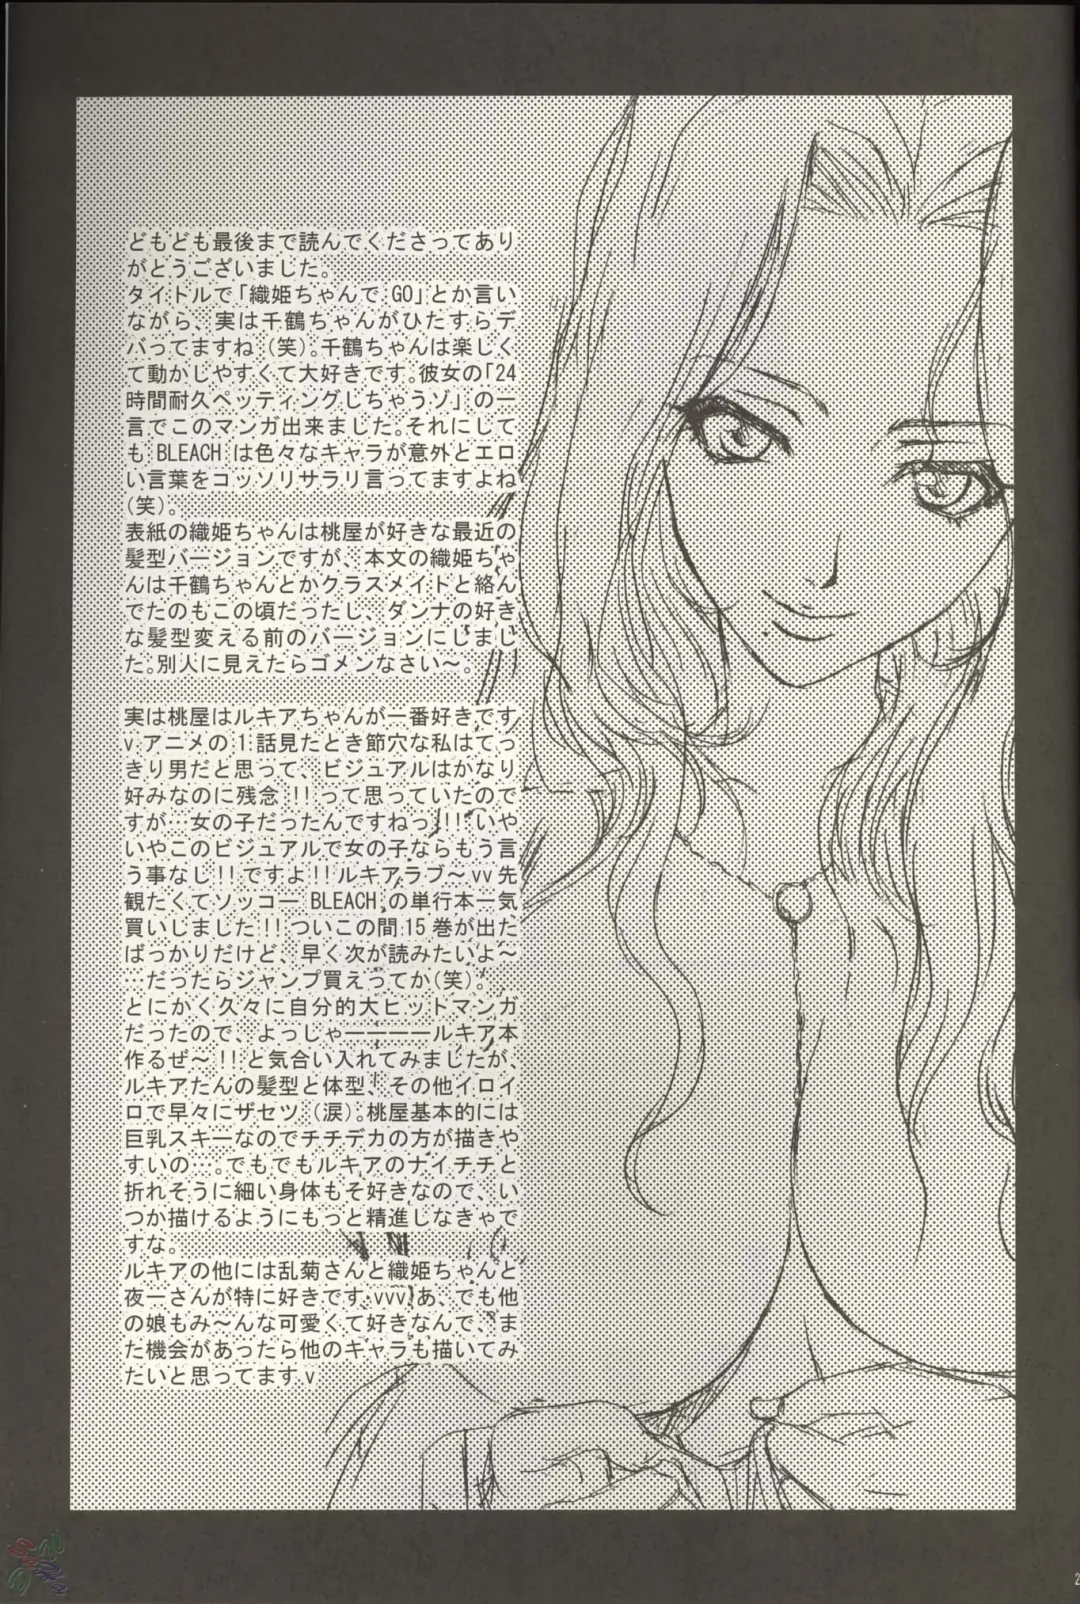 どもども最後まで読んでくださってあり
がとうございました。
タイトルで「織姫ちゃんで GO」とか言い
ながら、実は千鶴ちゃんがひたすらデ
バってますね（笑）。千鶴ちゃんは楽しく
て動かしやすくて大好きです。彼女の「24
時間耐久ペッティングしちゃうゾ」の一
言でこのマンガ出来ました。それにして
も BLEACH は色々なキャラが意外とエロ
い言葉をコッソリサラリ言ってますよね
（笑）。
表紙の織姫ちゃんは桃屋が好きな最近の
髪型バージョンですが、本文の織姫ちゃ
んは千鶴ちゃんとかクラスメイトと絡ん
でたのもこの頃だったし、ダンナの好き
な髪型変える前のバージョンにしまし
た。別人に見えたらゴメンなさい～。
実は桃屋はルキアちゃんが一番好きです
v アニメの 1 話見たとき節穴な私はてっ
きり男だと思って、ビジュアルはかなり
好みなのに残念!!って思っていたので
すが…女の子だったんですねっ!!!いや
いやこのビジュアルで女の子ならもう言
う事なし!!ですよ!!ルキアラブ～vv 先
観たくてソッコー BLEACH の単行本一気
買いしました!!ついこの間 15 巻が出た
ばっかりだけど、早く次が読みたいよ～
…だったらジャンプ買えってか（笑）。
とにかく久々に自分的大ヒットマンガ
だったので、よっしゃーーーールキア本
作るぜ～!!と気合い入れてみましたが、
ルキアたんの髪型と体型、その他イロイ
ロで早々にザセツ（涙）。桃屋基本的には
巨乳スキーなのでチチデカの方が描きや
すいの…。でもでもルキアのナイチチと
折れそうに細い身体もそ好きなので、い
つか描けるようにもっと精進しなきゃで
すな。
ルキアの他には乱菊さんと織姫ちゃんと
夜一さんが特に好きです vvv あ、でも他
の娘もみ～んな可愛くて好きなんで、ま
た機会があったら他のキャラも描いてみ
たいと思ってます v